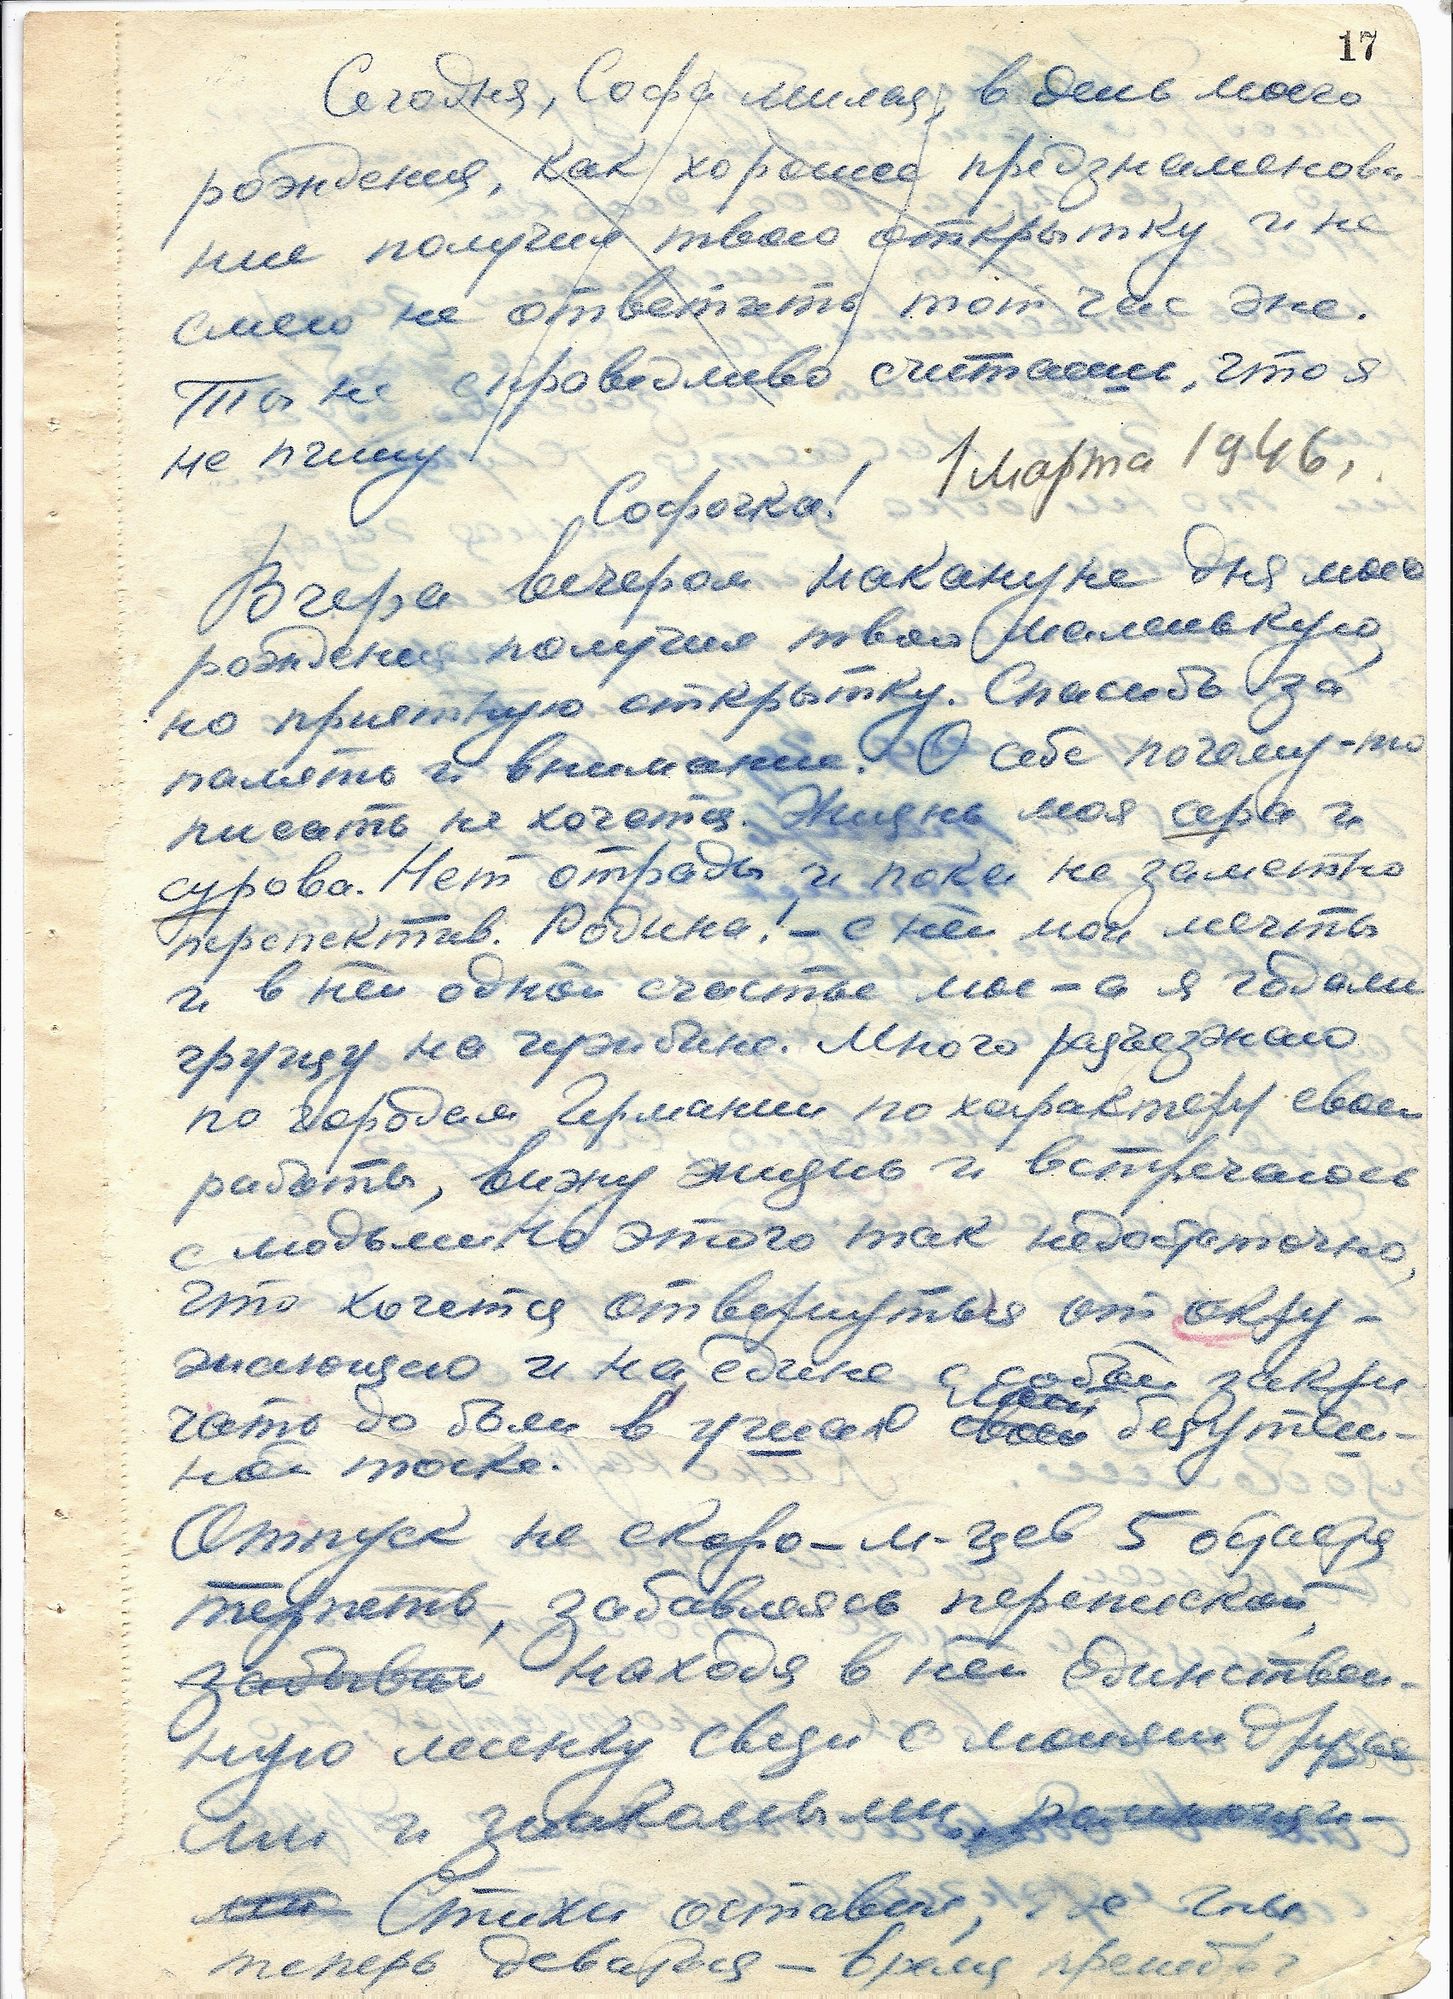 17
Сегодня, Софа милая, в день моего
рождения, как хорошее предзнаменова-
ние получил твою открытку и не
смею не ответить тот час же.
Ты не справедливо считаеш, что я
не пишу
1 марта 1946.
Софочка!
Вчера вечером накануне дня моего
рождения получил твою маленькую,
но приятную открытку. Спасибо за
память и внимание. О себе почему-то
писать не хочется. Жизнь моя сера и
сурова. Нет отрады, и пока не заметно
перспектив. Родина! – с ней мои мечты
и в ней одной счастье мое – а я годами
грущу на чужбине. Много разъезжаю
по городам Германии по характеру своей
работы, вижу жизнь и встречаюсь
с людьми. Но этого так недостаточно,
что хочется отвернуться от окру-
жающего и наедине с собой закри
чать до боли в ушах своей безутеш-
ной тоске.
Отпуск не скоро – м-цев 5 обожда
терпеть, забавляясь перепиской,
забывая находя в ней единствен-
ную связи с моими друзья
ми и знакомыми,
ми Стихи оставил, не
теперь деваться – время